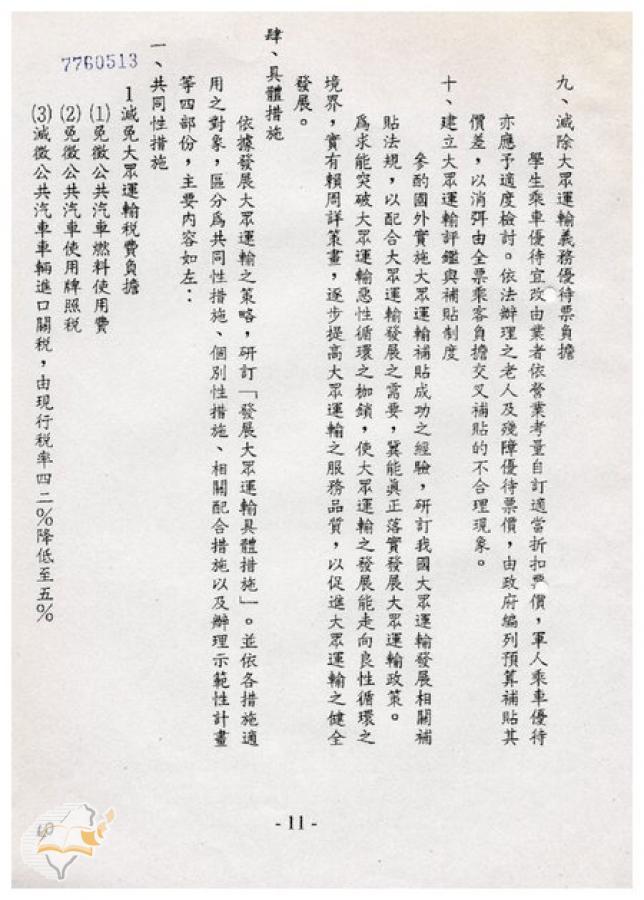 九、減除大眾運輸義務優待票負擔
學生乘車優待宜改由業者依營業考量自訂適當折扣票價，軍人乘車優待
亦應予適度檢討。依法辦理之老人及殘障優待票價，由政府編列預算補貼其
價差，以消弭由全票乘客負擔交叉補貼的不合理現象。
十、建立大眾運輸評鑑與補貼制度
參酌國外實施大眾運輸補貼成功之經驗，研訂我國大眾運輸發展相關補
貼法規，以配合大眾運輸發展之需要，冀能眞正落實發展大眾運輸政策。
爲求能突破大眾運輸惡性循環之枷鎖，使大眾運輸之發展能走向良性循環之
境界，實有賴周詳策畫，逐步提高大眾運輸之服務品質，以促進大眾運輸之健全
發展。
肆、具體措施
依據發展大眾運輸之策略，研訂「發展大眾運輸具體措施」。並依各措施適
用之對象，區分爲共同性措施、個別性措施、相關配合措施以及辦理示範性計畫
等四部份，主要內容如左：
一、共同性措施
1減免大眾運輸稅費負擔
(1)免徵公共汽車燃料使用費
(2)免徵公共汽車使用牌照稅
(3)減徵公共汽車車輛進口關稅，由現行稅率四二%降低至五%
7760513
- 11 -